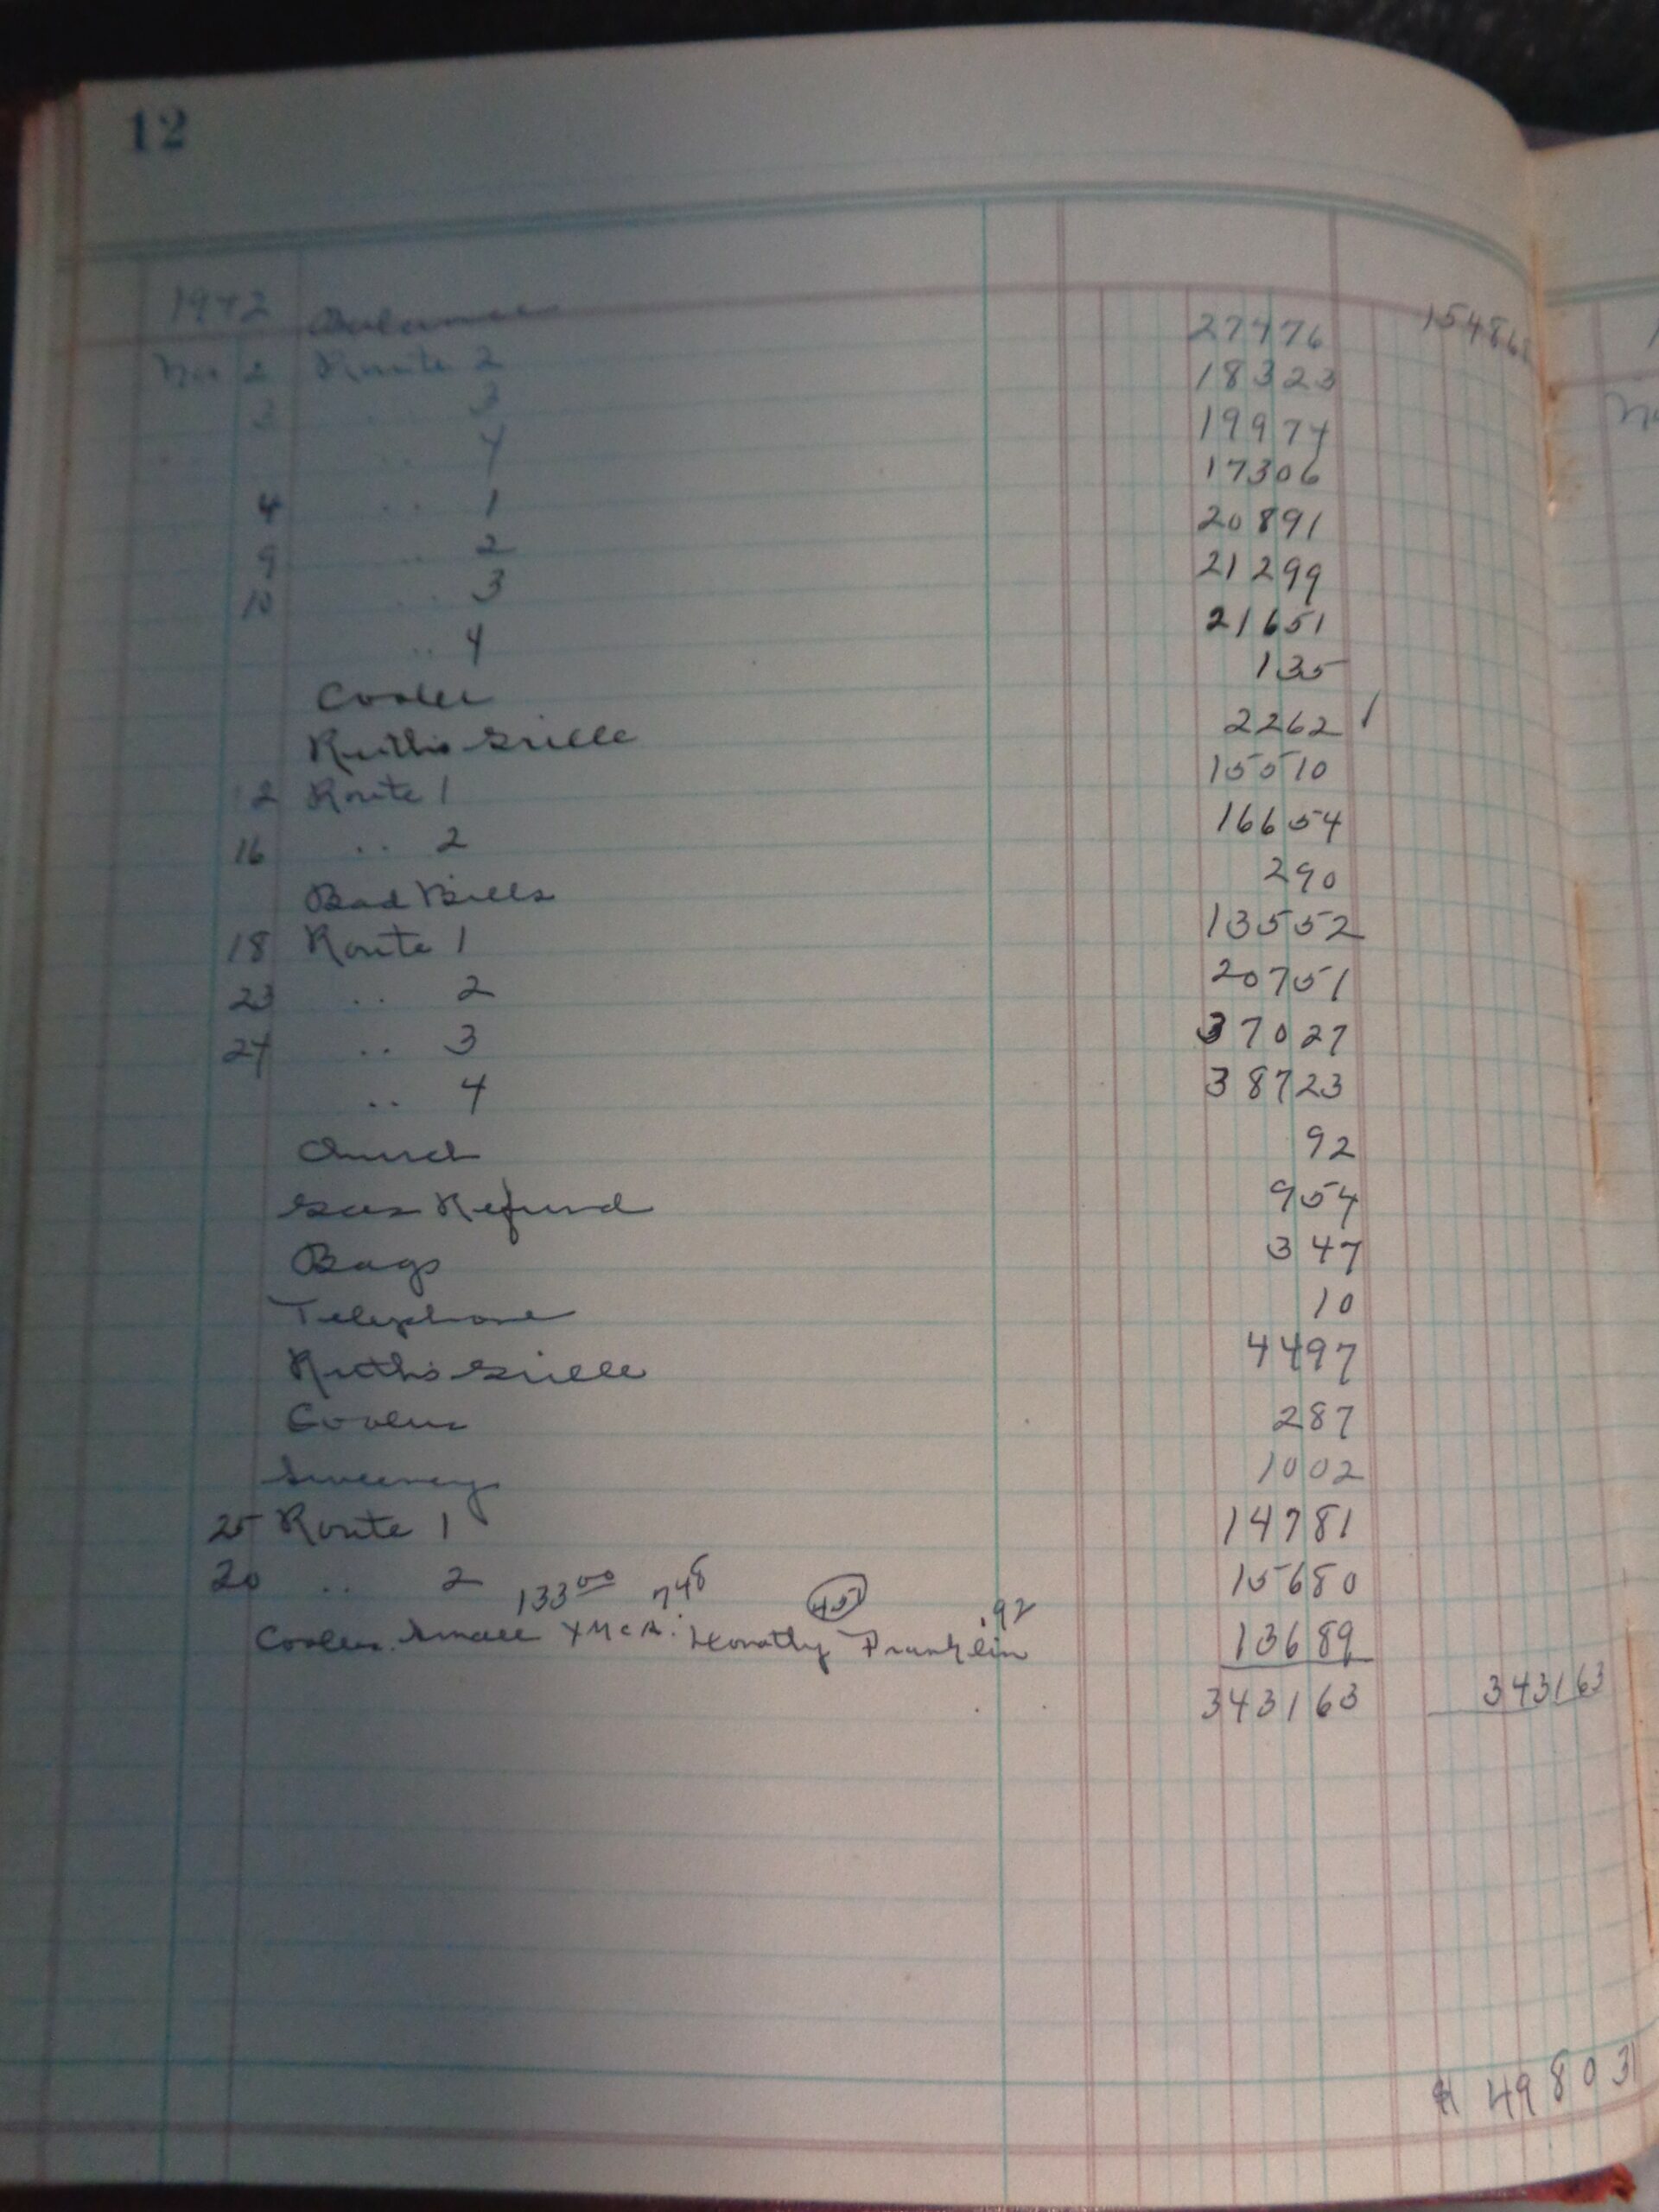 12
1942 Balance 154868
Nov 2 Route 2 27476
3 .. 3 18323
.. 4 19974
4 .. 1 17306
9 .. 2 20891
10 .. 3 21299
.. 4 21651
Cooler 135
Ruth's Grille 2262 /
12 Route 1 15510
16 .. 2 16654
Bad Bills 290
18 Route 1 13552
23 .. 2 20751
24 .. 3 37027
.. 4 38723
Church 92
Gas Refund 954
Bags 347
Telephone 10
Ruth's Grille 4497
Cooler 287
Sweeney 1002
25 Route 1 14781
20 .. 2 15680
133 00 748 457 .92
Cooler. YMCA. Franklin 13689
343163 343163
498031